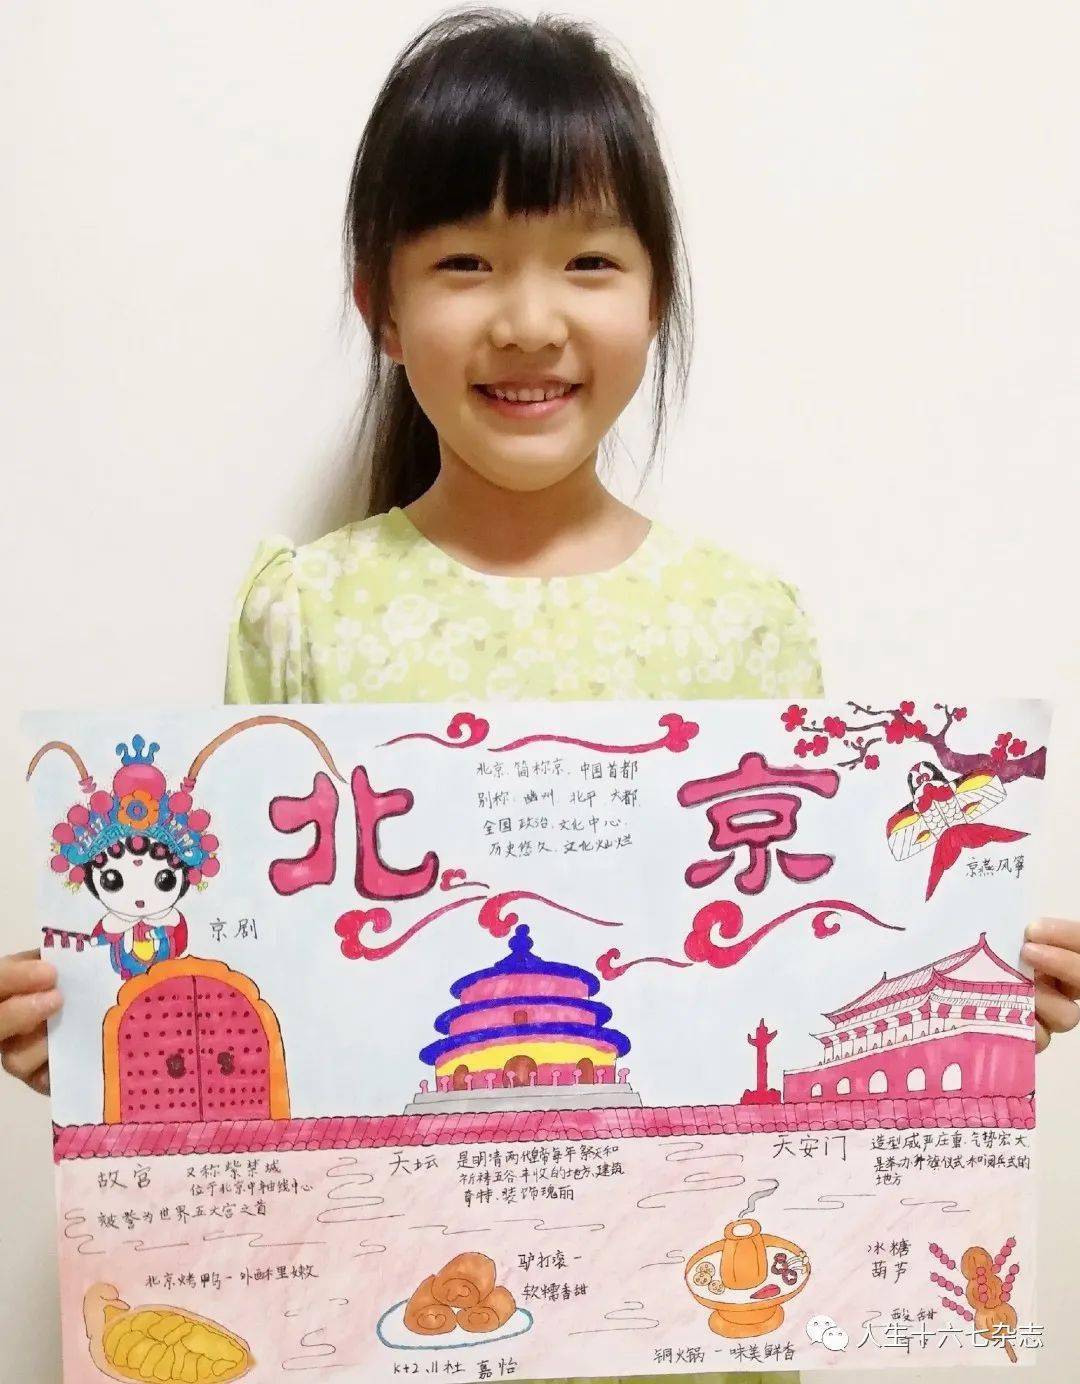 北京
北京、简称京、中国首都
别称：幽州、北平、大都、
全国政治、文化中心、
历史悠久、文化灿烂
京燕风筝
京剧
故宫
又称紫禁城
位于北京中轴线中心
被誉为世界五大宫之首
天坛
是明清两代皇帝每年祭天和
祈祷五谷丰收的地方、建筑
奇特、装饰瑰丽
天安门
造型威严庄重、气势宏大、
是举办升旗仪式和阅兵式的
地方
北京烤鸭-外酥里嫩
驴打滚-
软糯香甜
铜火锅-味美鲜香
冰糖
葫芦
酸甜
嘉怡
人生十六七杂志